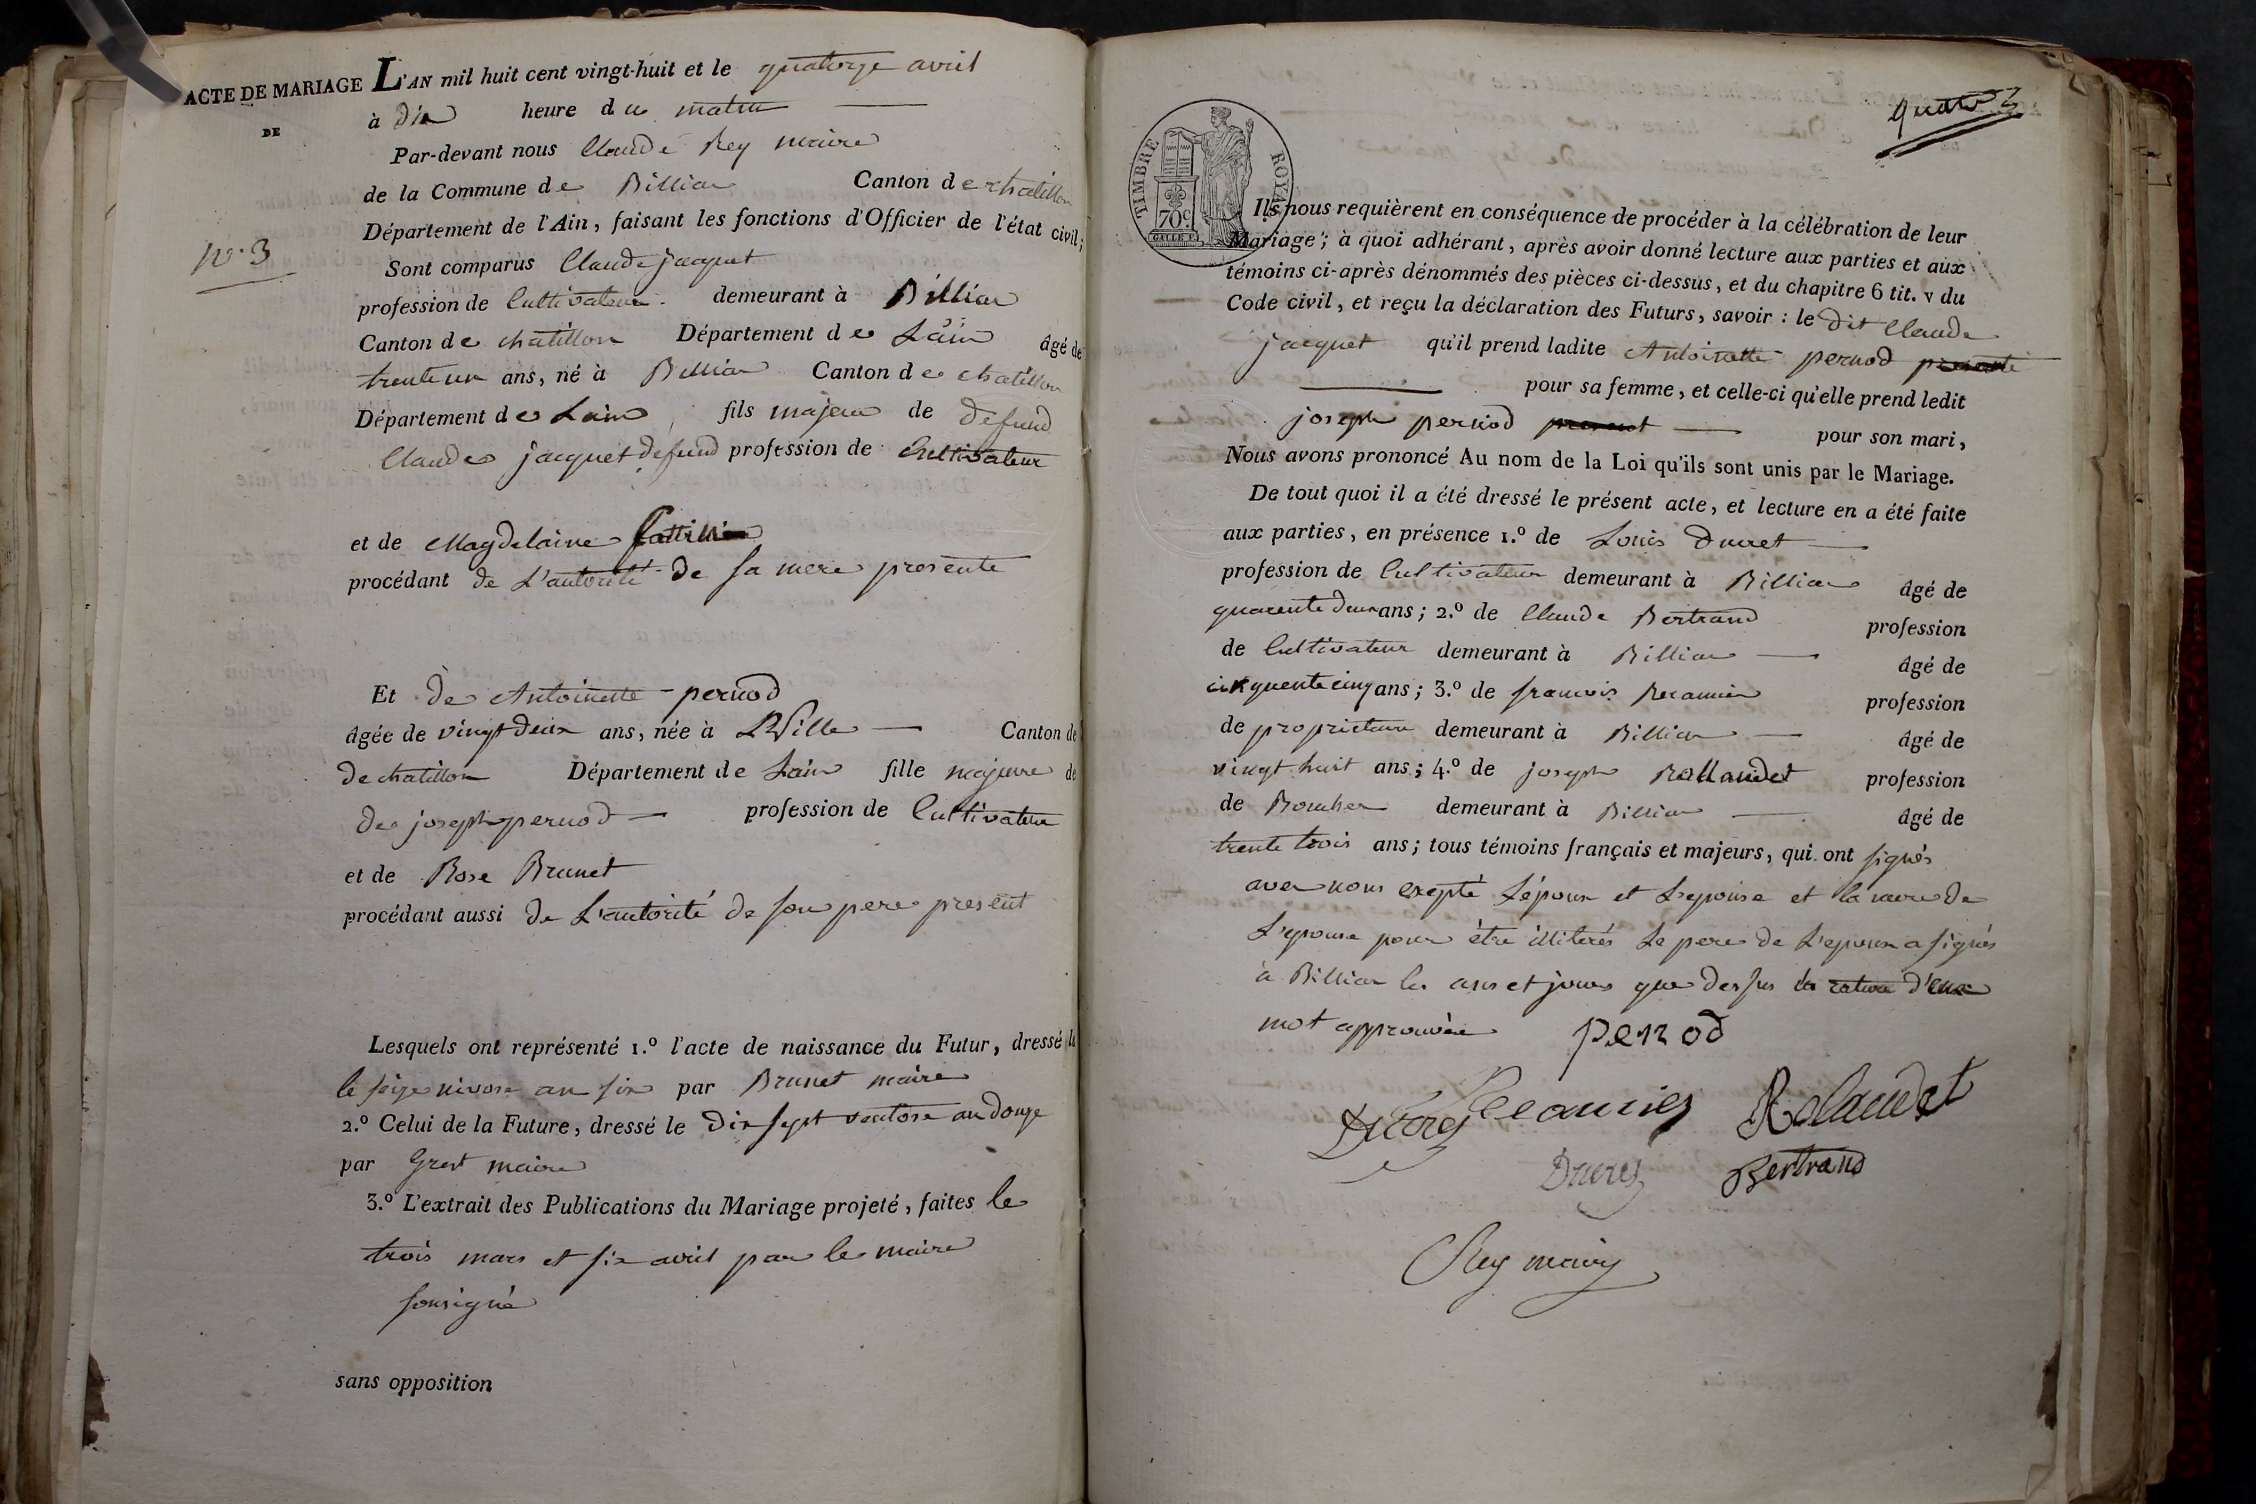 ACTE DE MARIAGE
DE
N.° 3
L'AN mil huit cent vingt-huit et le quatorze avril
à dix heure du matin
Par-devant nous Claude Rey maire
de la Commune de Billiat Canton de chatillon
Département de l'Ain, faisant les fonctions d'Officier de l'état civil;
Sont comparus Claude jacquet
profession de Cultivateur demeurant à Billiat
Canton de chatillon Département de Lain âgé de
trente un ans, né à Billiat Canton de chatillon
Département de Lain fils majeur de defund
Claude jacquet defund profession de Cultivateur
et de Magdelaine
procédant de L'autorité de sa mere presente
Et de Antoinette pernod
âgée de vingt deux ans, née à Canton de
de chatillon Département de Lain fille majeure de
de joseph pernod profession de Cultivateur
et de Rose Brunet
procédant aussi de L'autorité de son pere present
Lesquels ont représenté 1.° l'acte de naissance du Futur, dressé le
le seize nivose an six par Brunet maire
2.° Celui de la Future, dressé le dix sept ventose an douze
par maire
3.° L'extrait des Publications du Mariage projeté, faites le
trois mars et six avril par le maire
sousigné
sans opposition
quatre
TIMBRE ROYAL
70c.
Ils nous requièrent en conséquence de procéder à la célébration de leur
Mariage; à quoi adhérant, après avoir donné lecture aux parties et aux
témoins ci-après dénommés des pièces ci-dessus, et du chapitre 6 tit. v du
Code civil, et reçu la déclaration des Futurs, savoir : le dit Claude
jacquet qu'il prend ladite Antoinette pernod presente
pour sa femme, et celle-ci qu'elle prend ledit
joseph pernod present pour son mari,
Nous avons prononcé Au nom de la Loi qu'ils sont unis par le Mariage.
De tout quoi il a été dressé le présent acte, et lecture en a été faite
aux parties, en présence 1.° de Louis Ducret
profession de Cultivateur demeurant à Billiat âgé de
quarente deux ans; 2.° de Claude Bertrand profession
de Cultivateur demeurant à Billiat âgé de
cinquente cinq ans; 3.° de francois Beramier profession
de proprietaire demeurant à Billiat âgé de
vingt huit ans; 4.° de joseph Rollandet profession
de Boucher demeurant à Billiat âgé de
trente trois ans; tous témoins français et majeurs, qui ont signés
avec nous exepté L'époux et L'epouse et la mere de
L'epouse pour être illiterés Le pere de L'epoux a signés
à Billiat les ans et jours que dessus la rature d'un
mot approuvée pernod
Rolandet
Ducret
Bertrand
Rey maire